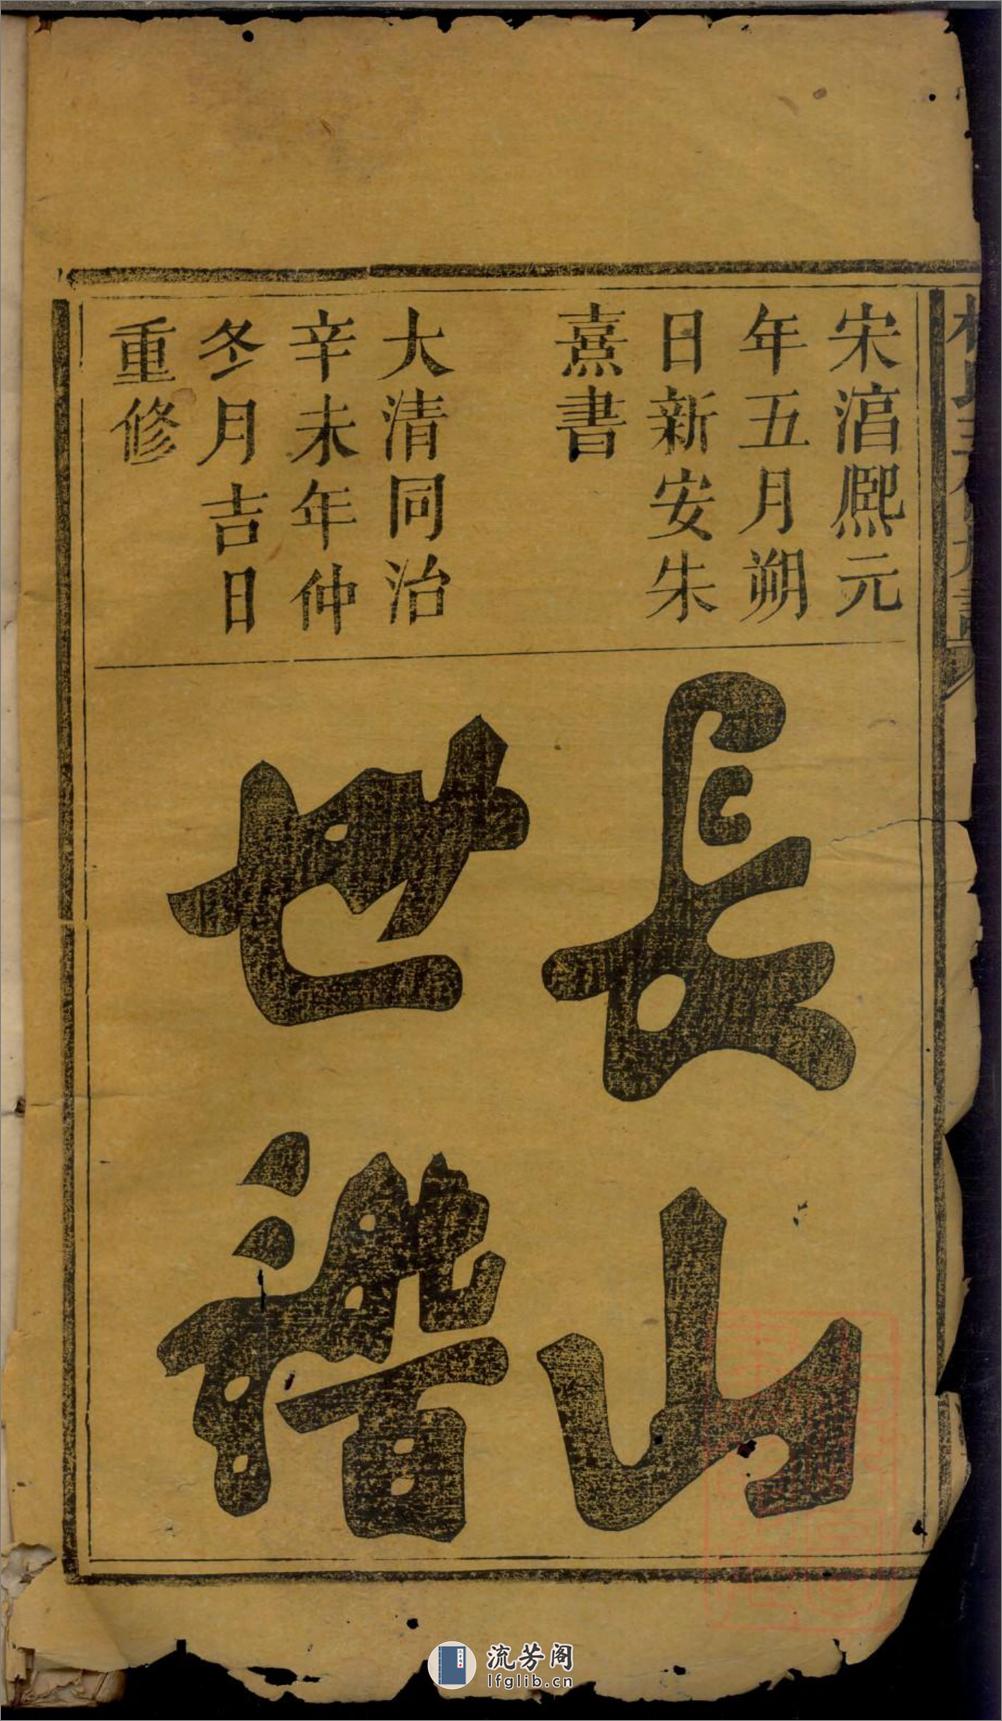 宋湻熙元
年五月朔
日新安朱
熹書
大清同治
辛未年仲
冬月吉日
重修
長山
世譜
流芳阁
lfglib.cn